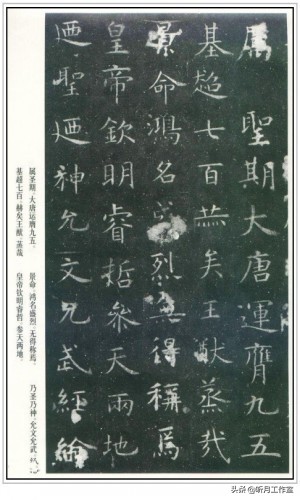 属聖期大唐運膺九五
基超七百赫矣王猷蒸哉
景命鴻名盛烈無得稱焉
皇帝欽明睿哲叅天兩地
迺聖迺神允文允武經綸
属圣期。大唐运膺九五
基超七百。赫矣王猷,蒸哉
景命,鸿名盛烈,无得称焉。
皇帝钦明睿哲,参天两地。
乃圣乃神,允文允武
头条 @听月工作室